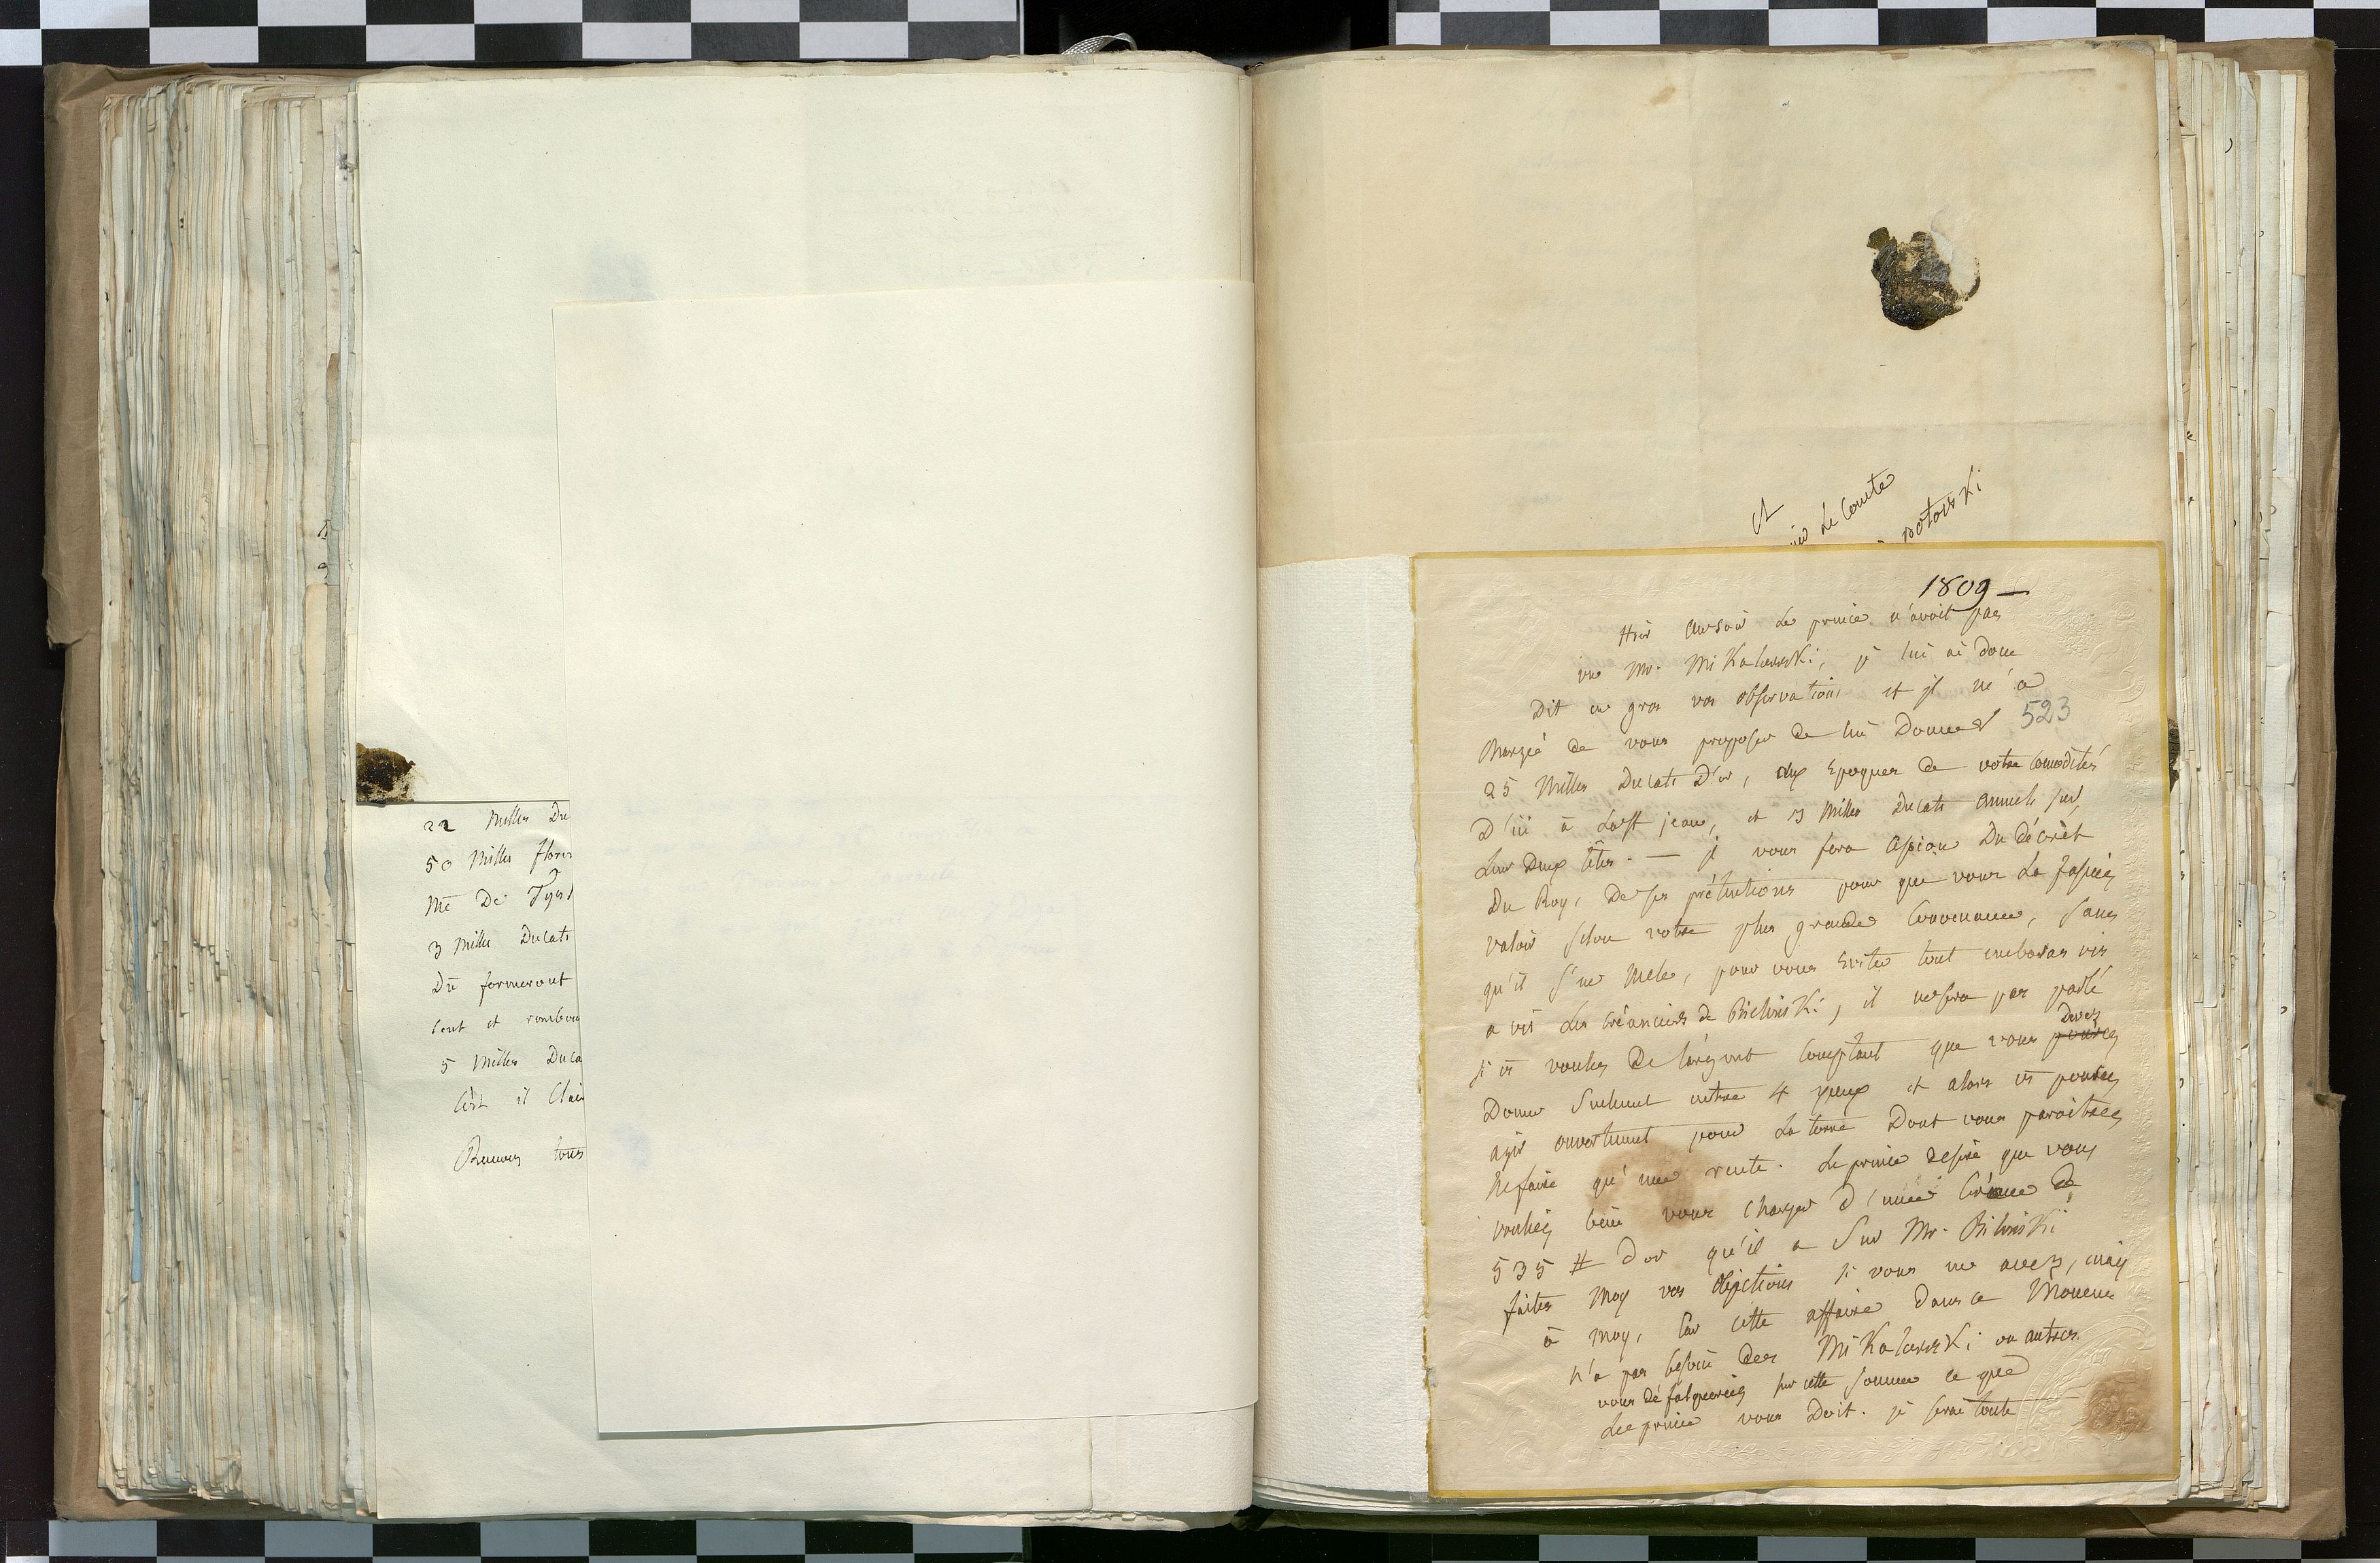 22 Milles Du
50 Milles flori
Me De Tys
3 Milles Ducats
Du formeront
cent et
5 Milles Duca
C'est il Clai
Recevez tous
ct
Le Comte
1809 —
Hier Ausoir Le prince n'avoit pas
vu Mr. MiKalowsKi, je lui ai donc
Dit en gros vos observations et il m'a
Chargé de vous proposer de lui Donner
523
25 Milles Ducats D'or, aux Epoques de votre Comodités
D'ici à La St jean, et 3 Milles Ducats annuels sur
Leur Deux têtes. — je vous fera Cession Du décrèt
Du Roy, De ses prétentions pour que vous La fassiéz
valoir selon votre plus grande Convenance, sans
qu'il s'en Mele, pour vous Eviter tout embaras vis
a vis Les Créanciers de BielinsKi, il ne sera pas parlé
si vs voulez De largent Comptant que vous pouvez
Devez
Donner Seulement entre 4 yeux et alors vs pouvez
agir ouvertement pour La terre Dont vous paroitréz
Ne faire qu'une rente. Le prince desire que vous
vouliéz bien vous charger d'une Créance de
535 # Dor qu'il a Sur Mr. BilinsKi
faites Moy vos Objections si vous en avez, mais
à moy, Car cette affaire dans ce Moment
N'a pas besoin des MiKalowsKi ou autres
vous défalqueriéz sur cette somme ce que
Le prince vous Doit. je serai toute